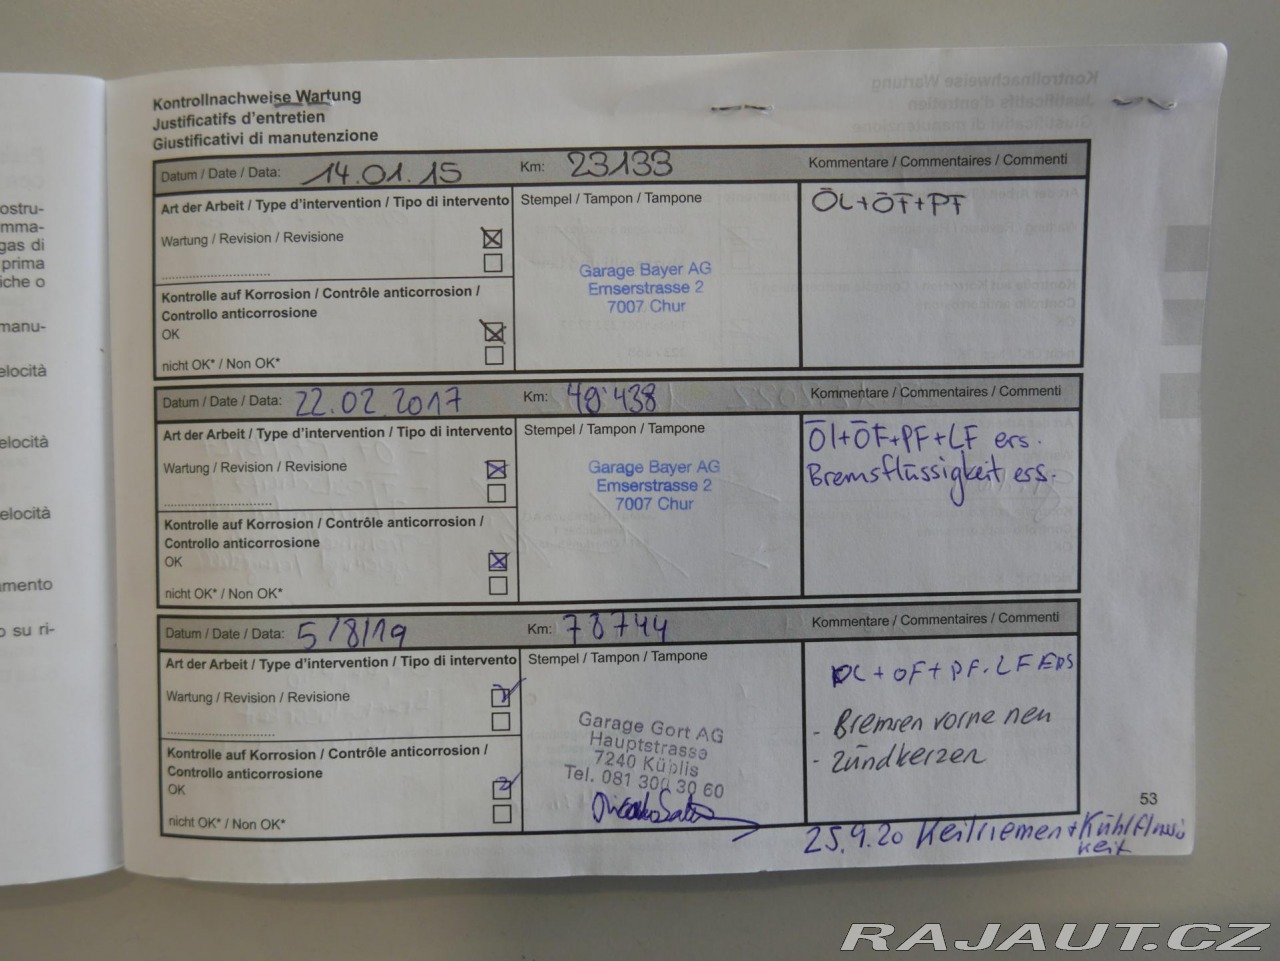 ostru-
mma-
gas di
prima
iche o
manu-
elocità
elocità
elocità
amento
o su ri-
Kontrollnachweise Wartung
Justificatifs d'entretien
Giustificativi di manutenzione
Datum / Date / Data: 14.01.15 Km: 23133 Kommentare / Commentaires / Commenti
Art der Arbeit / Type d'intervention / Tipo di intervento Stempel / Tampon / Tampone ÖL+ÖF+PF
Wartung / Revision / Revisione
Garage Bayer AG
Emserstrasse 2
7007 Chur
Kontrolle auf Korrosion / Contrôle anticorrosion /
Controllo anticorrosione
OK
nicht OK* / Non OK*
Datum / Date / Data: 22.02.2017 Km: 48'438 Kommentare / Commentaires / Commenti
Art der Arbeit / Type d'intervention / Tipo di intervento Stempel / Tampon / Tampone Öl+ÖF+PF+LF ers.
Wartung / Revision / Revisione Bremsflüssigkeit ess.
Garage Bayer AG
Emserstrasse 2
7007 Chur
Kontrolle auf Korrosion / Contrôle anticorrosion /
Controllo anticorrosione
OK
nicht OK* / Non OK*
Datum / Date / Data: 5/8/19 Km: 78744 Kommentare / Commentaires / Commenti
Art der Arbeit / Type d'intervention / Tipo di intervento Stempel / Tampon / Tampone ÖL+ÖF+PF.LF ERS
Wartung / Revision / Revisione
- Bremsen vorne neu
- Zündkerzen
Garage Gort AG
Hauptstrasse
7240 Küblis
Tel. 081 300 30 60
Kontrolle auf Korrosion / Contrôle anticorrosion /
Controllo anticorrosione
OK
nicht OK* / Non OK*
53
25.9.20 Keilriemen + Kühlflüssi
keit
RAJAUT.CZ